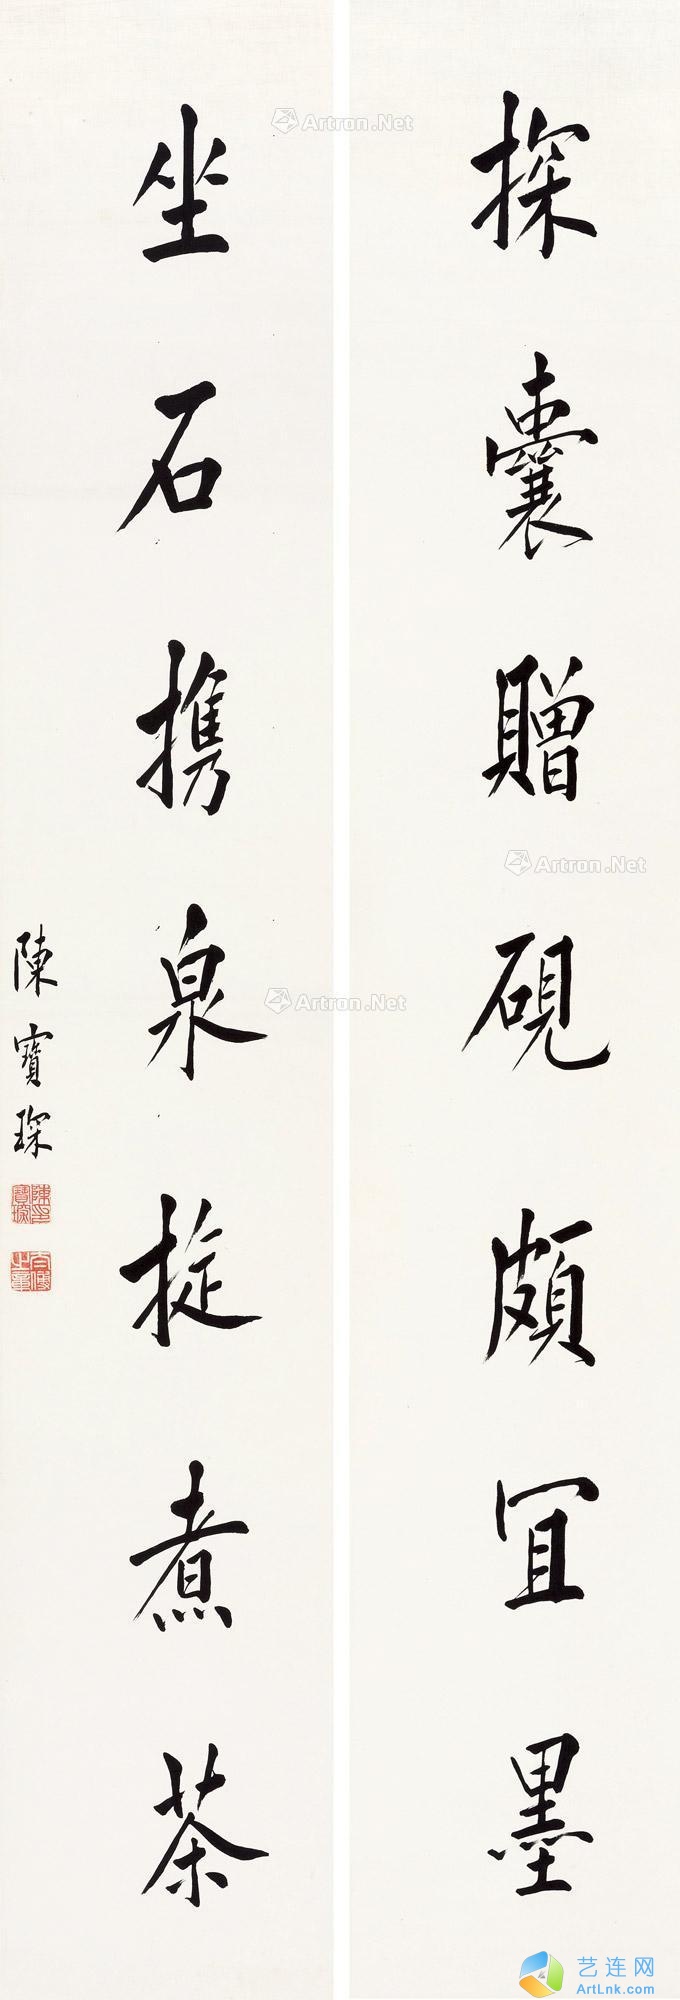 探囊贈硯頗宜墨
坐石携泉旋煮茶
陳寶琛
陳印寶琛
太傅之章
Artron.Net
Artron.Net
Artron.Net
艺连网
ArtLnk.com